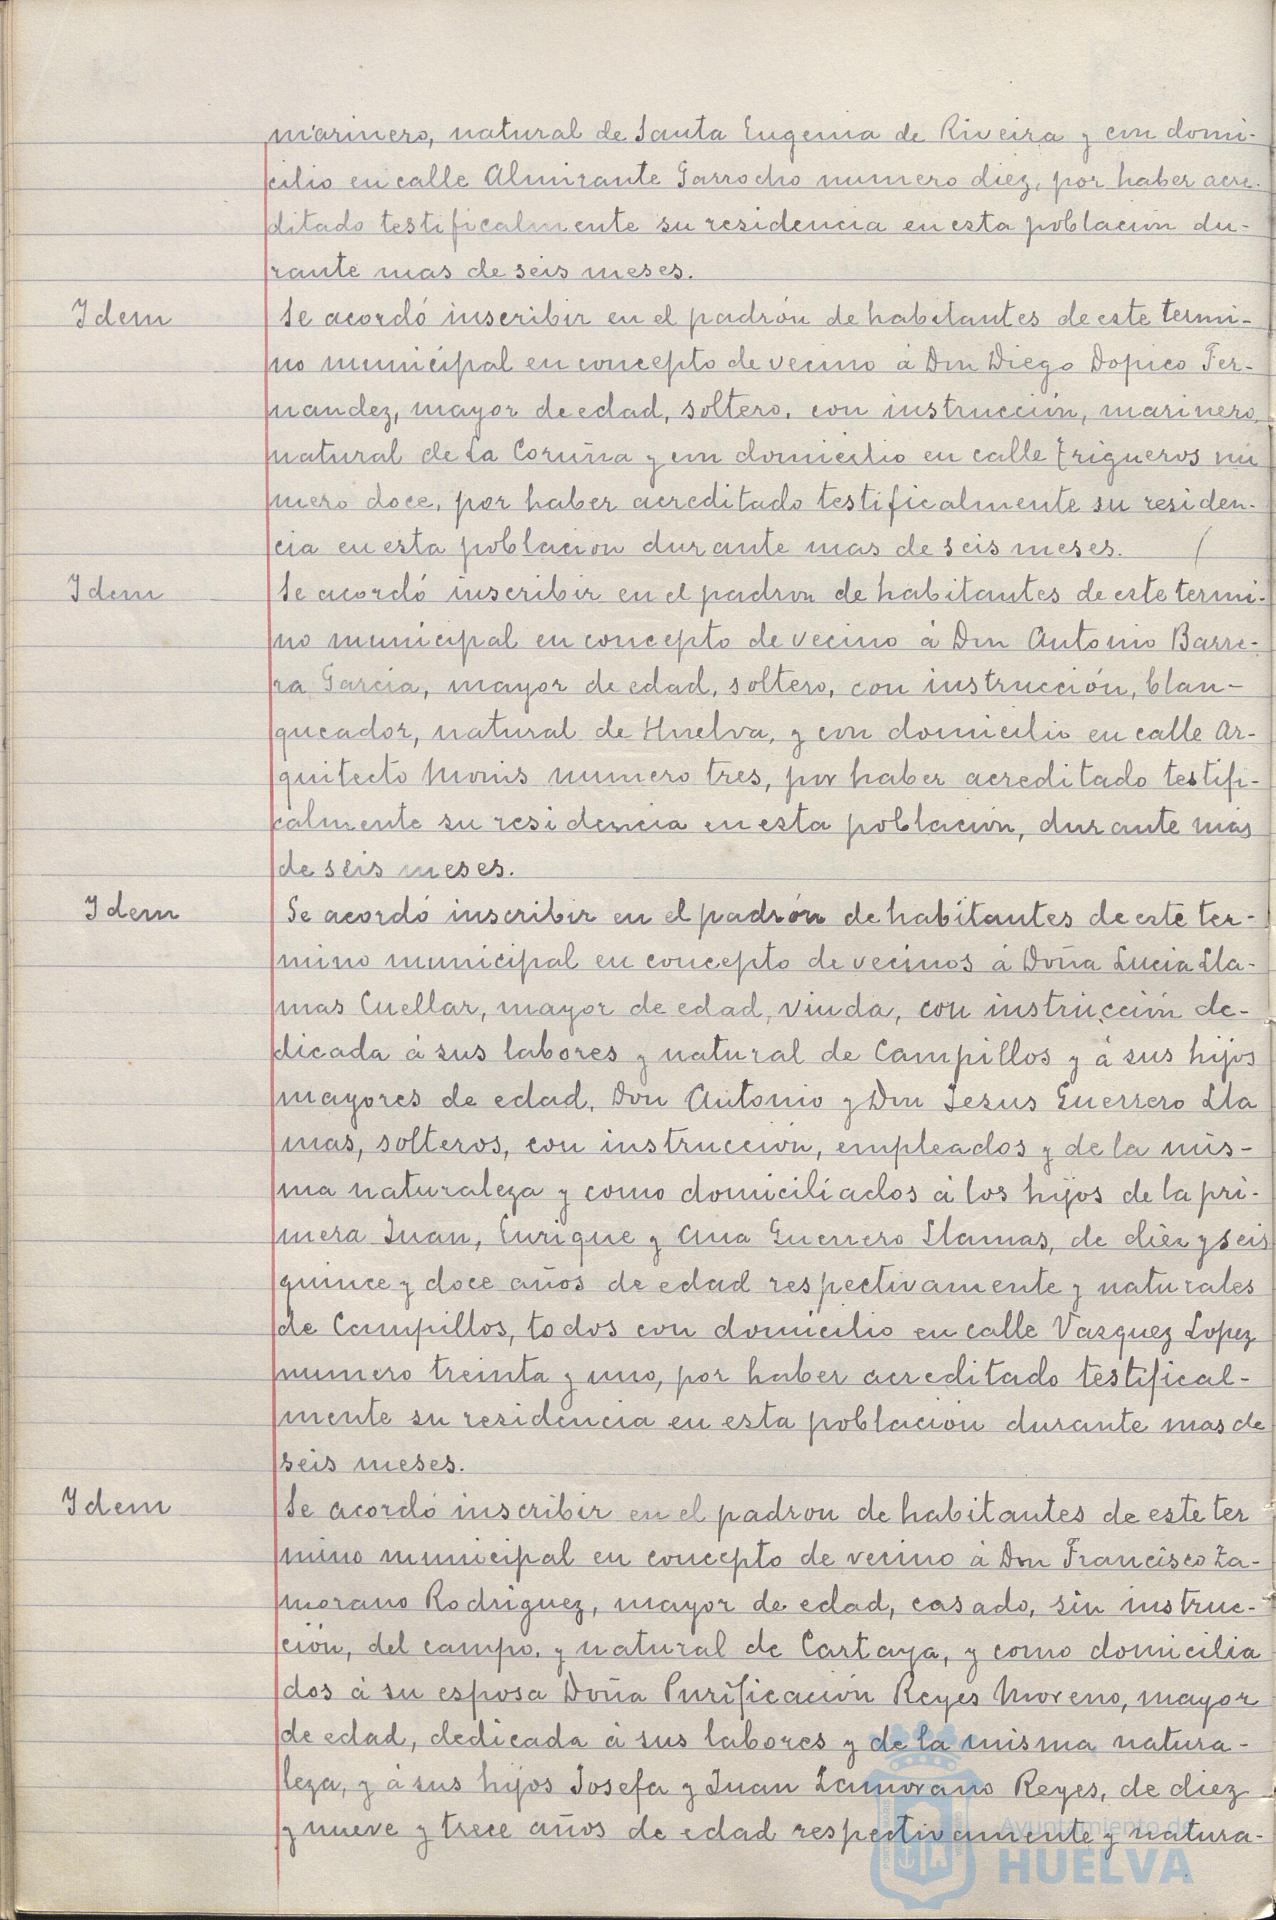 marinero, natural de Santa Eugenia de Riveira y con domi-
cilio en calle Almirante Garrocho numero diez, por haber acre-
ditado testificalmente su residencia en esta poblacion du-
rante mas de seis meses.
Idem
Se acordó inscribir en el padrón de habitantes de este termi-
no municipal en concepto de vecino á Don Diego Dopico Fer-
nandez, mayor de edad, soltero, con instrucción, marinero,
natural de La Coruña y con domicilio en calle Trigueros nu
mero doce, por haber acreditado testificalmente su residen-
cia en esta poblacion durante mas de seis meses. /
Idem
Se acordó inscribir en el padron de habitantes de este termi-
no municipal en concepto de vecino á Don Antonio Barre-
ra Garcia, mayor de edad, soltero, con instrucción, blan-
queador, natural de Huelva, y con domicilio en calle Ar-
quitecto Monis numero tres, por haber acreditado testifi-
calmente su residencia en esta poblacion, durante mas
de seis meses.
Idem
Se acordó inscribir en el padrón de habitantes de este ter-
mino municipal en concepto de vecinos á Doña Lucia Lla-
mas Cuellar, mayor de edad, viuda, con instrucción de-
dicada á sus labores y natural de Campillos y á sus hijos
mayores de edad, Don Antonio y Don Jesus Guerrero Lla
mas, solteros, con instrucción, empleados y de la mis-
ma naturaleza y como domiciliados á los hijos de la pri-
mera Juan, Enrique y Ana Guerrero Llamas, de diez y seis
quince y doce años de edad respectivamente y naturales
de Campillos, todos con domicilio en calle Vazquez Lopez
numero treinta y uno, por haber acreditado testifical-
mente su residencia en esta población durante mas de
seis meses.
Idem
Se acordó inscribir en el padron de habitantes de este ter
mino municipal en concepto de vecino á Don Francisco Za-
morano Rodriguez, mayor de edad, casado, sin instruc-
ción, del campo, y natural de Cartaya, y como domicilia
dos á su esposa Doña Purificación Reyes Moreno, mayor
de edad, dedicada á sus labores y de la misma natura-
leza, y á sus hijos Josefa y Juan Zamorano Reyes, de diez
y nueve y trece años de edad respectivamente y natura-
Ayuntamiento de
HUELVA